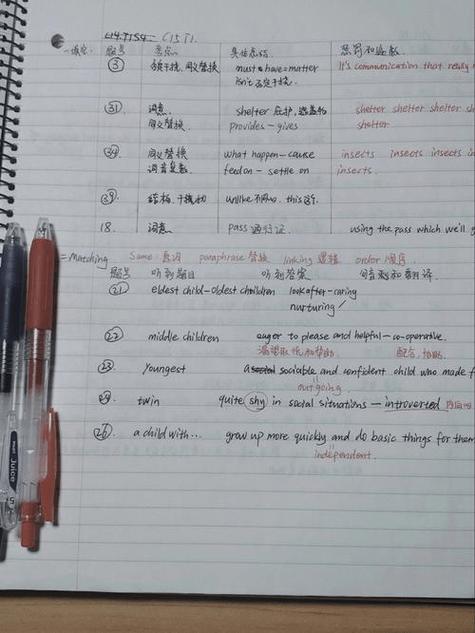 C14.T1S4 — C15T1.
一填空. 题号 考点 具体总结 惩罚和盘数
③ 错误干扰, 同义替换 must have = matter It's communication that really
isn't 否定干扰.
㉛ 词意. shelter 庇护, 遮蔽物 shelter shelter shelter sh
同义替换. provides - gives shelter
㉞ 同义替换 what happen - cause insects insects insects in
feed on - settle on insects.
㊴ 结构, 干扰词 unlike 不同如. this 这个.
18. 词意 pass 通行证. using the pass which we'll g
= Matching Same 意词 paraphrase 替换 linking 逻辑 order 顺序
题号 听到题目 听到答案
㉑ eldest child - oldest children look after - caring
nurturing /
㉒ middle children eager to please and helpful - co-operative.
渴望取悦和帮助. 配合, 协助.
㉓ youngest a sociable and confident child who made f
outgoing
㉔ twin quite shy in social situations — introverted 内向
㉖ a child with... grow up more quickly and do basic things for them
independent.
Juice